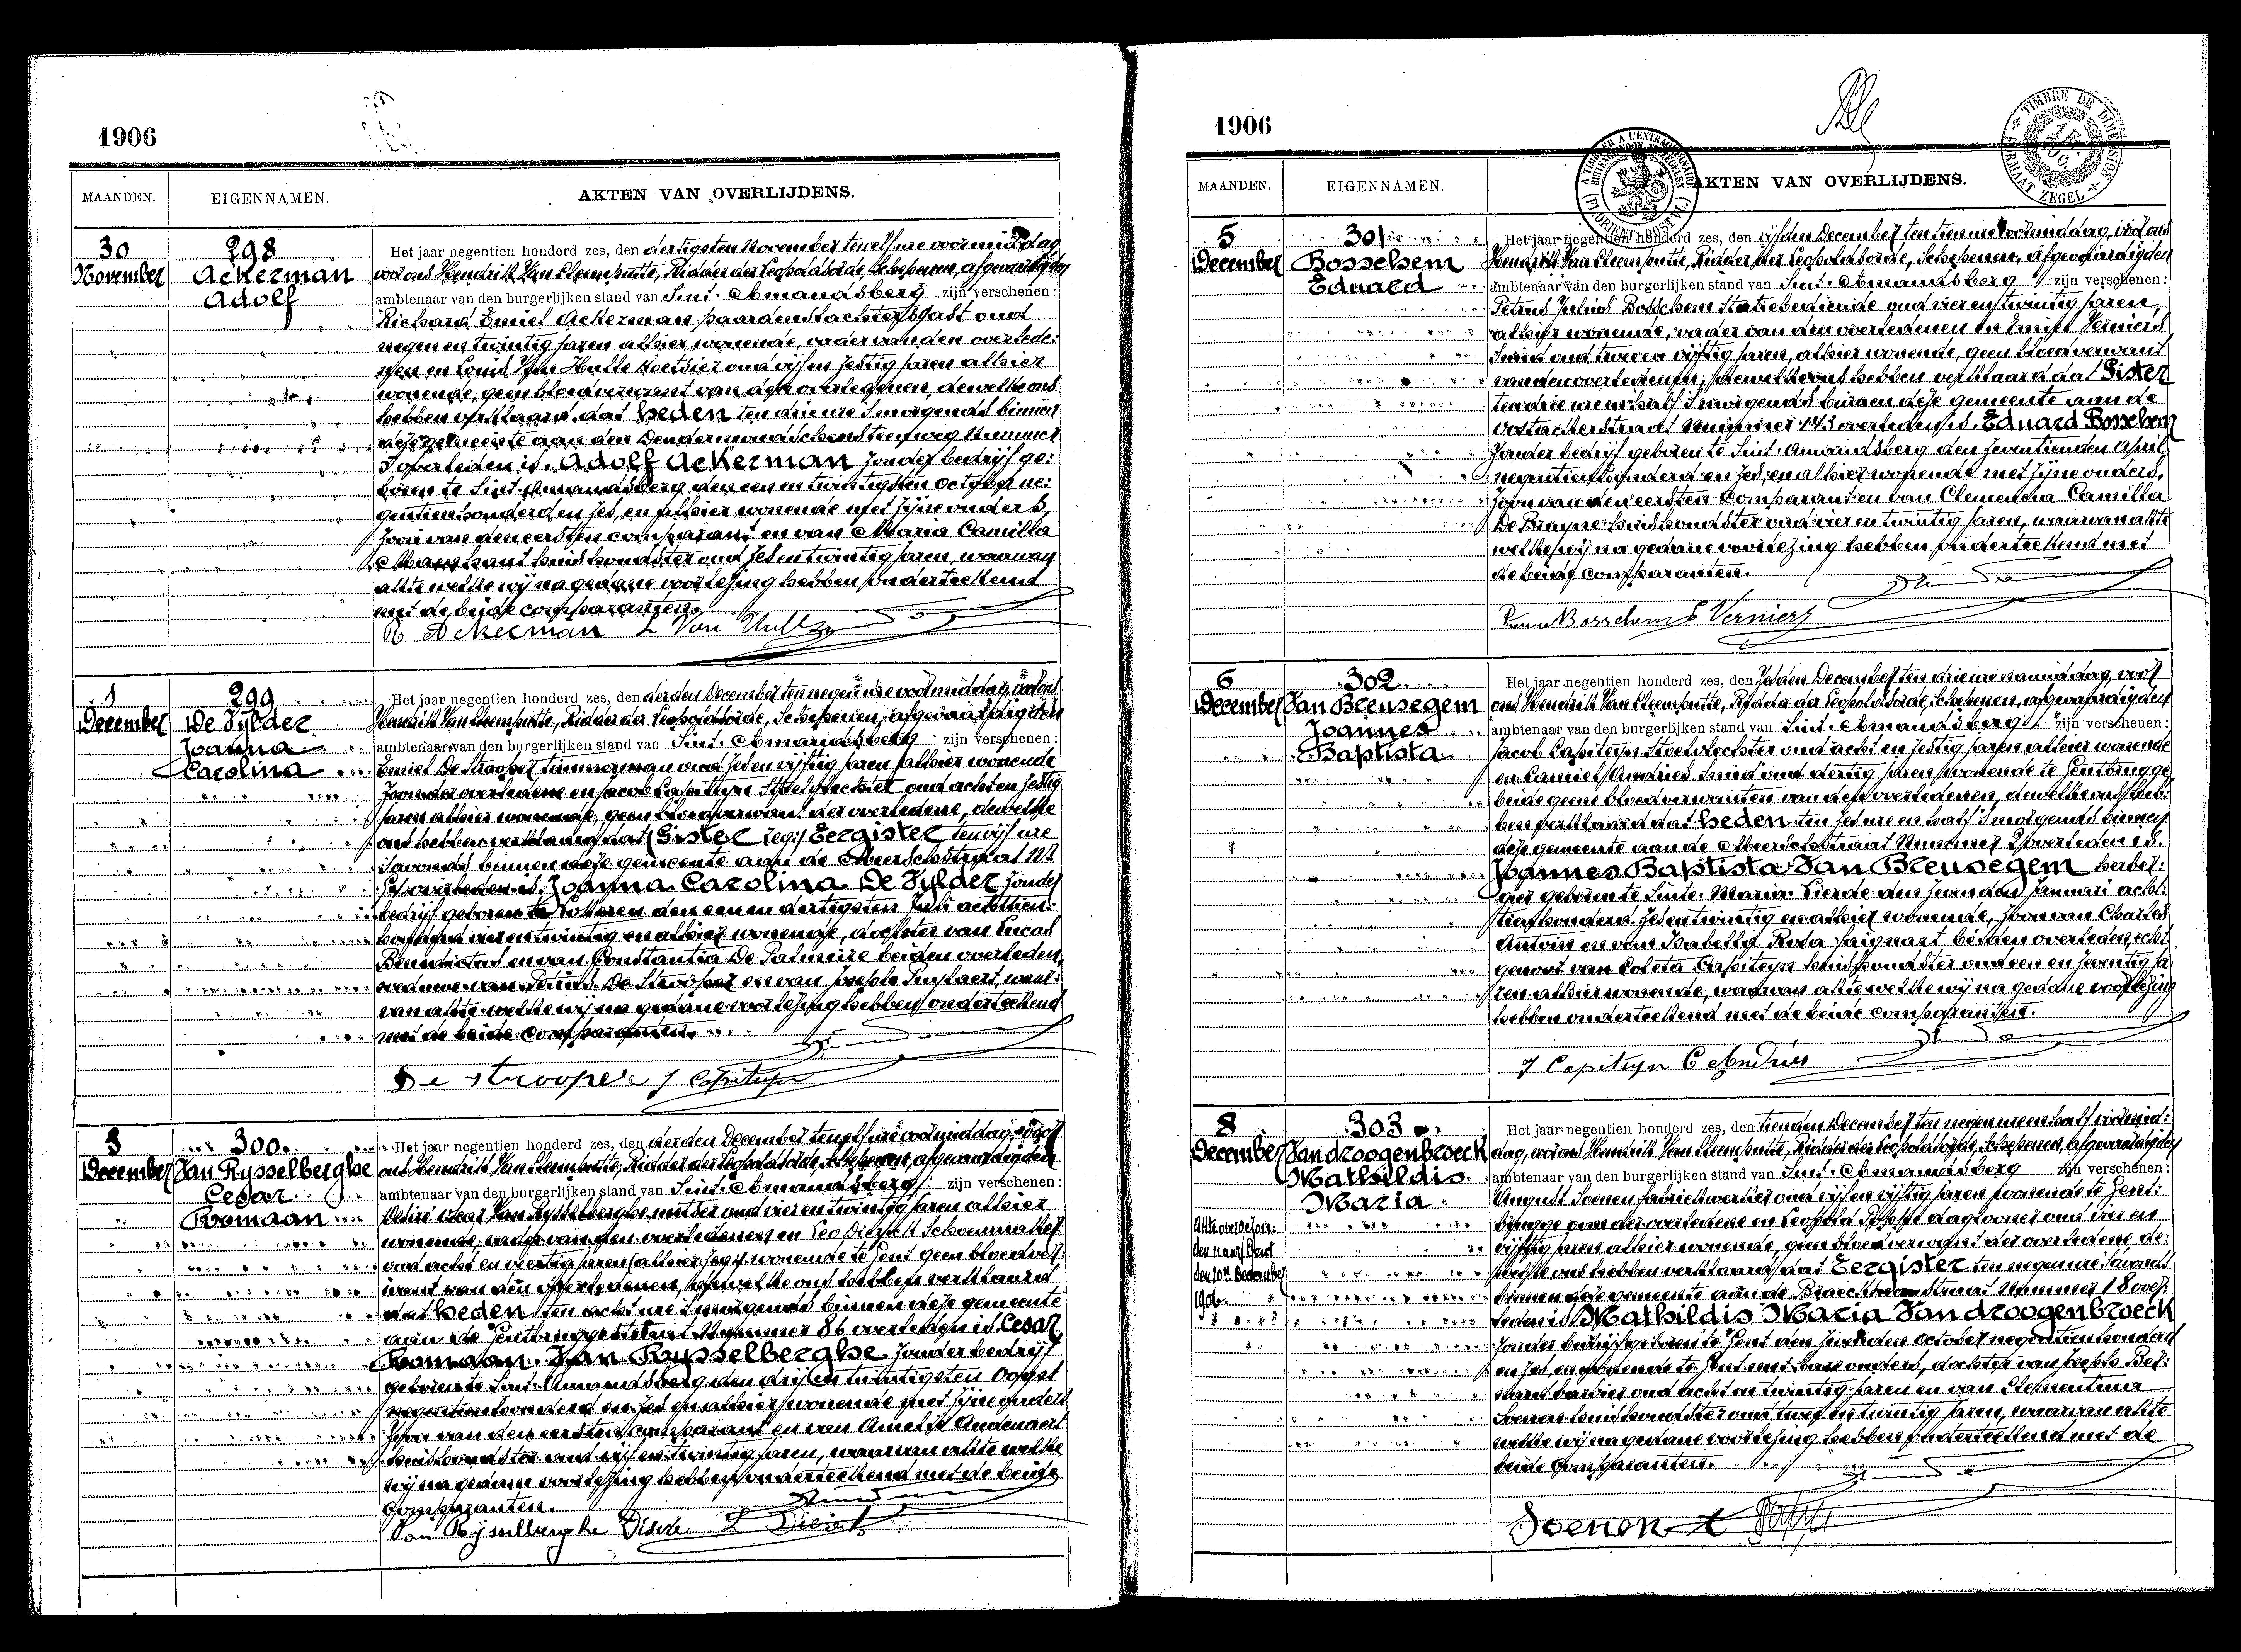 1906
MAANDEN. EIGENNAMEN. AKTEN VAN OVERLIJDENS.
30 November
298
Ackerman
Adolf
Het jaar negentien honderd zes, den dertigsten November ten elf ure voormiddag
voor ons Hendrik Van Cleemputte, Ridder der Leopoldsorde, Schepenen, afgevaardigden
ambtenaar van den burgerlijken stand van Sint-Amandsberg zijn verschenen:
Richard Emiel Ackerman paardenslachtersgast oud
negen en twintig jaren alhier wonende, vader van den overlede:
nen en Louis Van Hulle Koetsier oud vijf en zestig jaren alhier
wonende, geen bloedverwant van den overledenen, dewelke ons
hebben verklaard dat heden ten drie ure 's morgends binnen
deze gemeente aan den Dendermondschensteenweg Nummer
overleden is. Adolf Ackerman zonder bedrijf ge:
boren te Sint-Amandsberg den een en twintigsten October ne:
gentien honderd en zes, en alhier wonende met zijne ouders,
zoon van den eersten comparant en van Maria Camilla
huishoudster oud zes en twintig jaren, waarvan
akte welke wij na gedane voorlezing hebben onderteekend
met de beide comparanten.
R Ackerman L Van Hulle
1 December
299
De Vylder
Joanna
Carolina
Het jaar negentien honderd zes, den derden December ten negen ure voormiddag, voor ons
Hendrik Van Cleemputte, Ridder der Leopoldsorde, Schepenen, afgevaardigden
ambtenaar van den burgerlijken stand van Sint-Amandsberg zijn verschenen:
Emiel De Strooper timmerman oud zes en vijftig jaren alhier wonende
zoon der overledene en Jacob Capiteyn Stoelvlechter oud acht en zestig
jaren alhier wonende, geen bloedverwant der overledene, dewelke
ons hebben verklaard dat Gister zegge Eergister ten vijf ure
's avonds binnen deze gemeente aan de Meerschstraat N.r
overleden is. Joanna Carolina De Vylder zonder
bedrijf geboren te Lokeren den een en dertigsten Juli achttien:
honderd vier en twintig en alhier wonende, dochter van Lucas
Benedictus en van Constantia De Palmeire beiden overleden,
weduwe van Petrus De Strooper en van Joseph waar:
van akte welke wij na gedane voorlezing hebben onderteekend
met de beide comparanten.
De Strooper J Capiteyn
3 December
300.
Van Rysselberghe
Cesar
Romaan
Het jaar negentien honderd zes, den derden December ten elf ure voormiddag, voor
ons Hendrik Van Cleemputte, Ridder der Leopoldsorde, Schepenen, afgevaardigden
ambtenaar van den burgerlijken stand van Sint-Amandsberg zijn verschenen:
Van Rysselberghe oud vier en twintig jaren alhier
wonende, vader van den overledenen en Leo Dierick Schoenmaker
oud acht en veertig jaren alhier zegge wonende te Gent geen bloedver:
want van den overledenen, dewelke ons hebben verklaard
dat heden ten acht ure 's morgends binnen deze gemeente
aan de Gentbruggestraat Nummer 86 overleden is Cesar
Romaan Van Rysselberghe zonder bedrijf
geboren te Sint-Amandsberg den drij en twintigsten Oogst
negentien honderd en zes en alhier wonende met zijne ouders
zoon van den eersten comparant en van Audenaert
huishoudster oud vijf en twintig jaren, waarvan akte welke
wij na gedane voorlezing hebben onderteekend met de beide
comparanten.
Van Rysselberghe L Dierick
1906
MAANDEN. EIGENNAMEN. AKTEN VAN OVERLIJDENS.
TIMBRE DE DIMENSION FORMAAT ZEGEL
5 December
301
Bosschem
Eduard
Het jaar negentien honderd zes, den vijfden December ten tien ure voormiddag, voor ons
Hendrik Van Cleemputte, Ridder der Leopoldsorde, Schepenen, afgevaardigden
ambtenaar van den burgerlijken stand van Sint-Amandsberg zijn verschenen:
Petrus Julius Bosschem Statiebediende oud vier en twintig jaren,
alhier wonende, vader van den overledenen en Emiel Verniers
Smid oud twee en vijftig jaren, alhier wonende, geen bloedverwant
van den overledenen, dewelke ons hebben verklaard dat Gister
ten drie ure en half 's morgends binnen deze gemeente aan de
Oostackerstraat Nummer 143 overleden is. Eduard Bosschem
zonder bedrijf geboren te Sint-Amandsberg den zeventienden April
negentien honderd en zes, en alhier wonende met zijne ouders,
zoon van den eersten Comparant en van Clementia Camilla
De Bruyne huishoudster oud vier en twintig jaren, waarvan akte
welke wij na gedane voorlezing hebben onderteekend met
de beide comparanten.
Bosschem E Verniers
6 December
302
Van Breusegem
Joannes
Baptista
Het jaar negentien honderd zes, den zesden December ten drie ure namiddag, voor
ons Hendrik Van Cleemputte, Ridder der Leopoldsorde, Schepenen, afgevaardigden
ambtenaar van den burgerlijken stand van Sint-Amandsberg zijn verschenen:
Jacob Capiteyn Stoelvlechter oud acht en zestig jaren alhier wonende
en Camiel Andries Smid oud dertig jaren wonende te Gentbrugge
beide geene bloedverwanten van den overledenen, dewelke ons heb:
ben verklaard dat heden ten zes ure en half 's morgends binnen
deze gemeente aan de Meerschstraat Nummer 2 overleden is.
Joannes Baptista Van Breusegem herber:
gier geboren te Sinte-Maria-Lierde den zevenden Januari acht:
tien honderd zes en twintig en alhier wonende, zoon van Charles
Antoin en van Isabella Rosa Saignart beiden overleden, echt:
genoot van Coleta Capiteyn huishoudster oud een en zeventig ja:
ren alhier wonende, waarvan akte welke wij na gedane voorlezing
hebben onderteekend met de beide comparanten.
J Capiteyn C Andries
8 December
303
Van droogenbroeck
Mathildis
Maria
Akte overgezon:
den naar Gent
den 10en December
1906.
Het jaar negentien honderd zes, den tienden December ten negen ure en half voormid:
dag, voor ons Hendrik Van Cleemputte, Ridder der Leopoldsorde, Schepenen, afgevaardigden
ambtenaar van den burgerlijken stand van Sint-Amandsberg zijn verschenen:
August Soenen fabriekwerker oud vijf en vijftig jaren wonende te Gent:
brugge oom der overledene en Leopold dagloner oud vier en
vijftig jaren alhier wonende, geen bloedverwant der overledene de:
welke ons hebben verklaard dat Eergister ten negen ure 's avonds
binnen deze gemeente aan de Straat Nummer 18 over:
leden is Mathildis Maria Van droogenbroeck
zonder bedrijf geboren te Gent den October negentien honderd
en zes, en wonende te Gent met hare ouders, dochter van Joseph Ber:
nard oud acht en twintig jaren en van Clementina
Soenen huishoudster oud twee en twintig jaren, waarvan akte
welke wij na gedane voorlezing hebben onderteekend met de
beide Comparanten.
Soenen